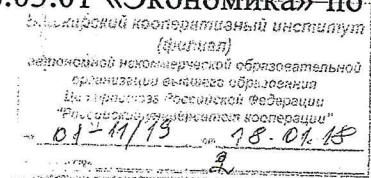 .03.01 «Экономика» по
кооперативный институт
(филиал)
автономной некоммерческой образовательной
организации высшего образования
Центросоюза Российской Федерации
"Российский университет кооперации"
01-11/19 от 18.01.18
2